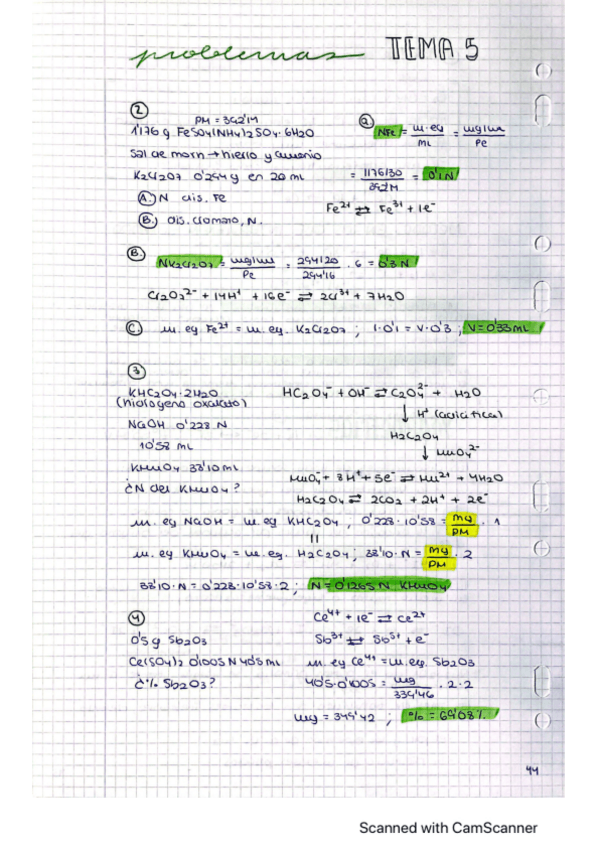 problemas TEMA 5
②
PM = 392'14
1'176 g FeSO4(NH4)2SO4·6H2O
Sal de morh → hierro y amonio
K2Cr2O7 0'294 g en 20 mL
A. N dis. Fe
B. dis. cromato, N.
a. NFe = m.eq / mL = mg/mL / Pe
= 1176/30 / 392'14 = 0'1 N
Fe2+ ⇄ Fe3+ + 1e-
B. NK2Cr2O7 = mg/mL / Pe = 294/20 / 294'16 · 6 = 0'3 N
Cr2O7 2- + 14H+ + 16e- ⇄ 2Cr3+ + 7H2O
C. m.eq Fe2+ = m.eq. K2Cr2O7 ; 1·0'1 = V·0'3 ; V = 0'33 mL
③
KHC2O4·2H2O
(hidrógeno oxalato)
NaOH 0'228 N
10'58 mL
KMnO4 38'10 mL
¿N del KMnO4?
HC2O4- + OH- ⇄ C2O4 2- + H2O
↓ H+ (acidificas)
H2C2O4
↓ MnO4 2-
MnO4- + 8H+ + 5e- ⇄ Mn2+ + 4H2O
H2C2O4 ⇄ 2CO2 + 2H+ + 2e-
m.eq NaOH = m.eq KHC2O4 , 0'228·10'58 = mg / PM · 1
=
m.eq KMnO4 = m.eq. H2C2O4 ; 38'10·N = mg / PM · 2
38'10·N = 0'228·10'58·2 ; N = 0'1265 N KMnO4
④
0'5 g Sb2O3
Ce(SO4)2 0'1005 N 40'5 mL
¿% Sb2O3?
Ce4+ + 1e- ⇄ Ce2+
Sb3+ ⇄ Sb5+ + e-
m.eq Ce4+ = m.eq. Sb2O3
40'5·0'1005 = mg / 339'46 · 2·2
mg = 345'42 ; % = 69'08%
44
Scanned with CamScanner